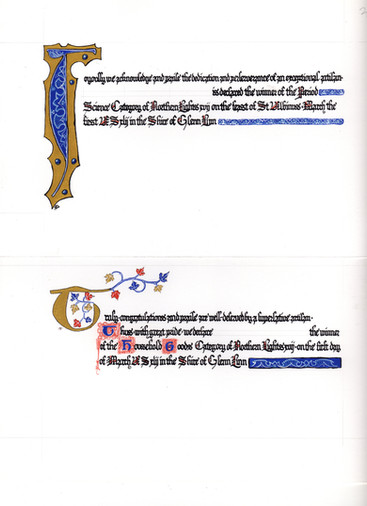 Joyfully we acknowledge and praise the dedication and perserverance of an exceptional artisan
is declared the winner of the Period
Science Category of Northern Lights xvij on the feast of St Albinus-March the
first A S xlij in the Shire of Glenn Linn
Truly congratulations and praise are well-deserved by a superlative artisan.
Thus with great pride we declare the winner
of the Household Goods Category of Northern Lights xvij on the first day
of March A S xlij in the Shire of Glenn Linn